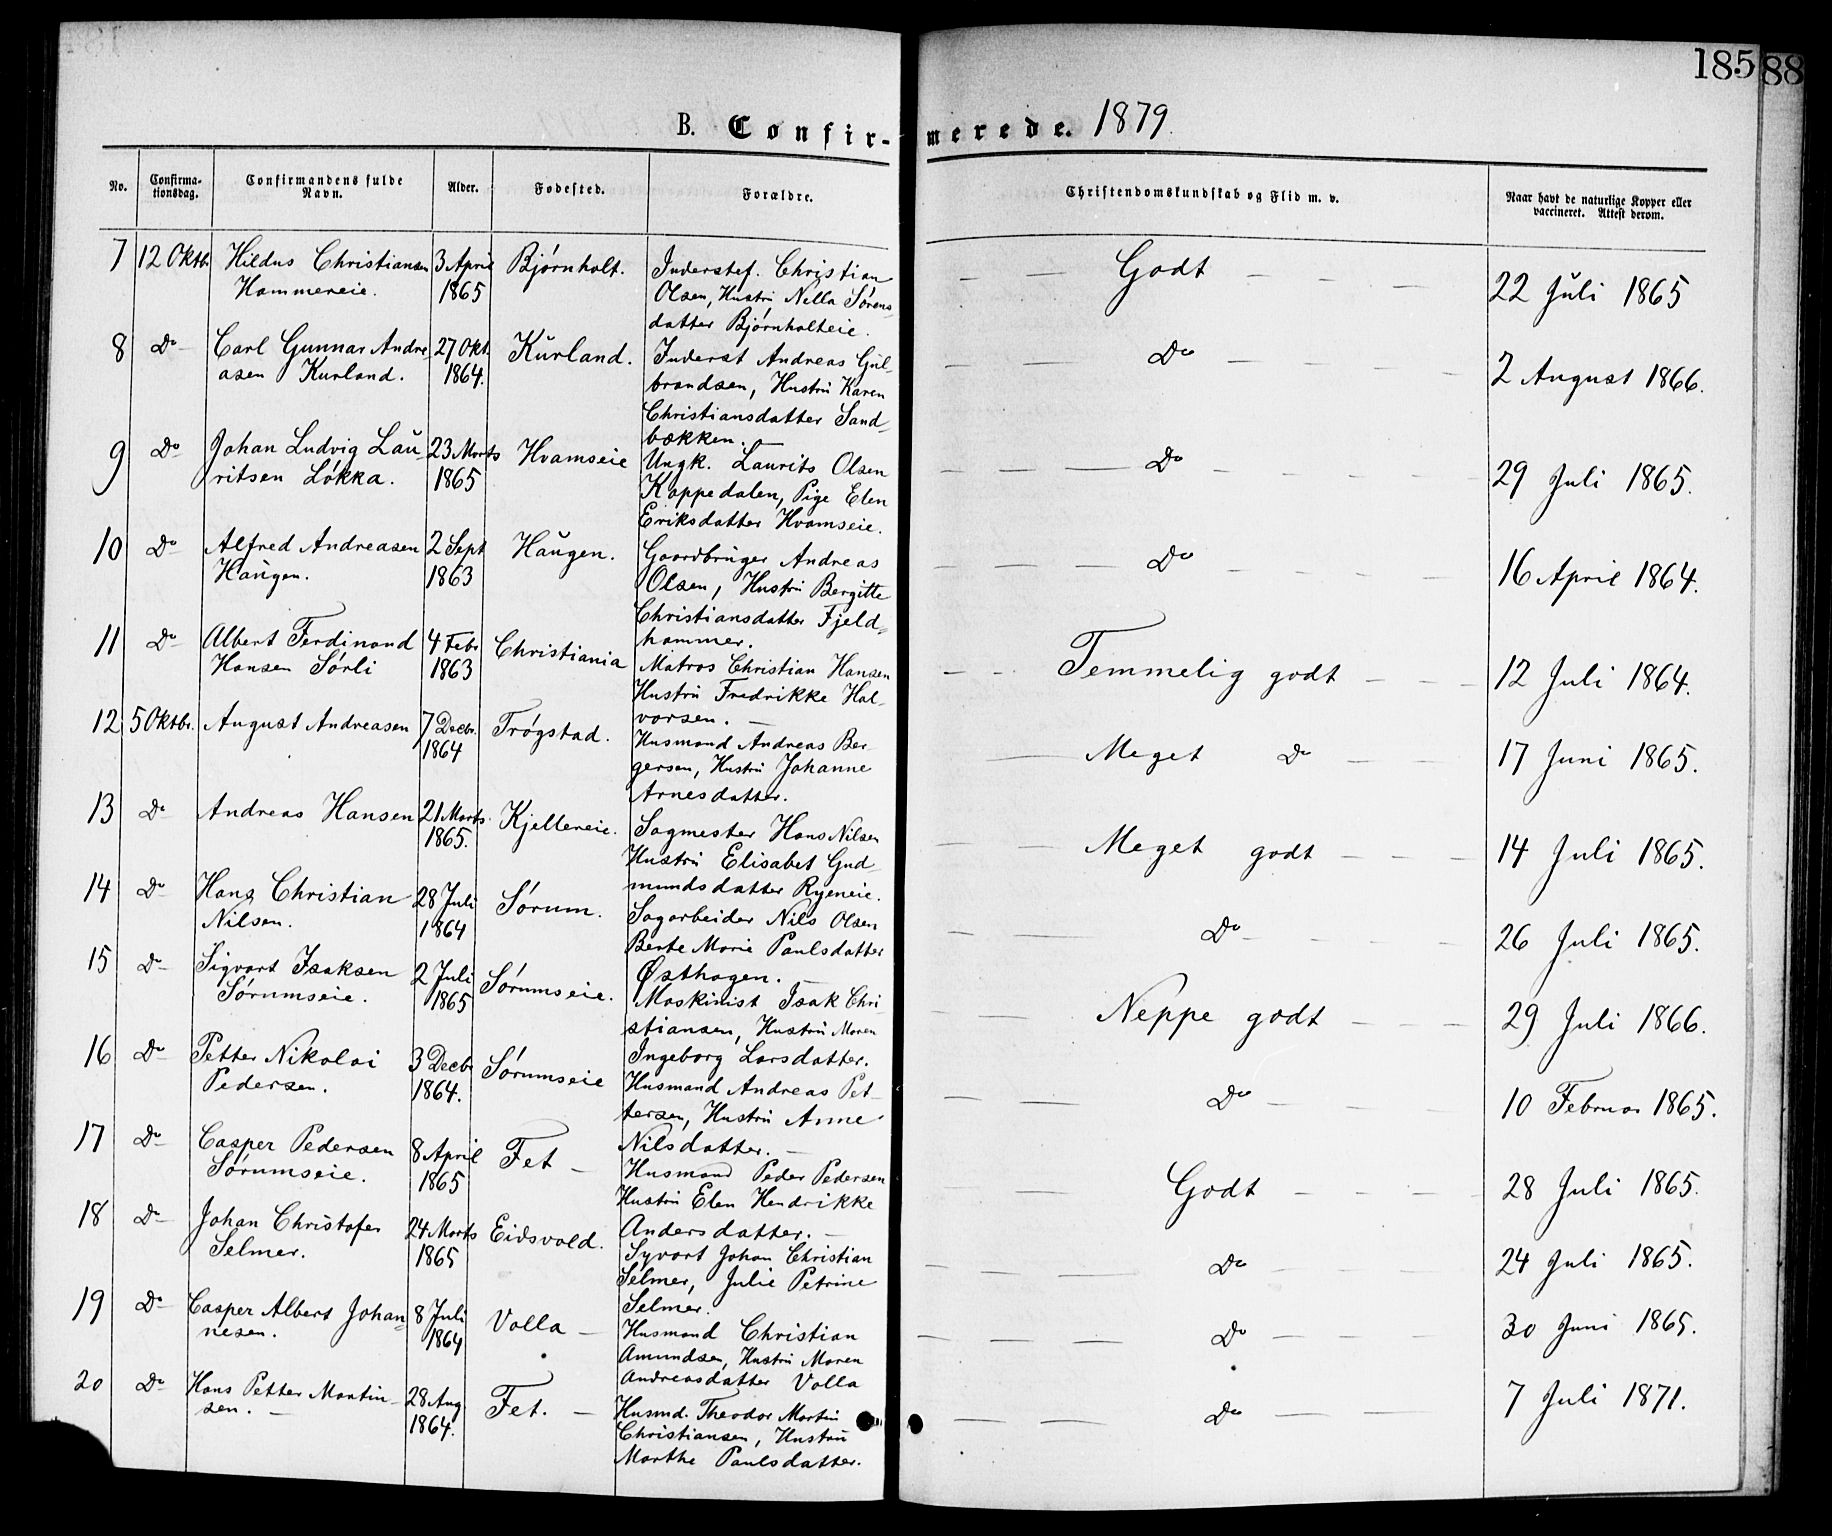 185
88
B. Confir-
merede. 1879.
No.
Confirma-
tionsdag.
Confirmandens fulde
Navn.
Alder.
Fødested.
Forældre.
Christendomskundskab og Flid m. v.
Naar havt de naturlige Kopper eller
vaccineret. Attest derom.
7 12 Oktbr Hildus Christiansen 3 April Bjørnholt. Inderstef. Christian — — Godt — — — 22 Juli 1865
Hammereie. 1865 Olsen, Hustru Nella Sørens-
datter Bjørnholteie.
8 Do — Carl Gunnar Andre 27 Okt. Kurland. Inderst Andreas Gul- — — Do — — — — 2 August 1866.
asen Kurland. 1864. brandsen, Hustru Karen
Christiansdatter Sand-
bækken. —
9 Do Johan Ludvig Lau- 23 Marts Hvamseie Ungk. Laurits Olsen — — — Do — — — — 29 Juli 1865.
ritsen Løkka. 1865 Kappedalen, Pige Elen
Eriksdatter Hvamseie.
10 Do Alfred Andreasen 2 Sept Haugen. Gaardbruger Andreas — — — Do — — — — 16 April 1864.
Haugen. 1863 Olsen, Hustru Bergitte
Christiansdatter Fjeld-
hammer.
11 Do Albert Ferdinand 4 Febr Christiania Matros Christian Hansen — — Temmelig godt — — — 12 Juli 1864.
Hansen Sørli 1863 Hustru Fredrikke Hal-
vorsen. —
12 5 Oktbr. August Andreasen 7 Decbr. Trøgstad. Husmand Andreas Ber- — Meget Do — — 17 Juni 1865.
1864 gersen, Hustru Johanne
Arnesdatter.
13 Do Andreas Hansen 21 Marts. Kjellereie. Sagmester Hans Nilsen — — Meget godt — — — 14 Juli 1865.
1865. Hustru Elisabet Gud-
mundsdatter Ryeneie.
14 Do Hans Christian 28 Juli Sørum. Sagarbeider Nils Olsen — — Do — — — 26 Juli 1865.
Nilsen. 1864 Berte Marie Paulsdatter
Østhagen. —
15 Do Sigvart Isaksen 2 Juli Sørumseie. Maskinist Isak Chri — — Neppe godt — — 29 Juli 1866.
Sørumseie. 1865 stiansen, Hustru Maren
Ingeborg Larsdatter.
16 Do Petter Nikolai 3 Decbr Sørumseie Husmand Andreas Pet- — — Do — — — 10 Februar 1865.
Pedersen. 1864. tersen, Hustru Anne
Nilsdatter. —
17 Do Casper Pedersen 8 April Fet — Husmand Peder Pedersen — — Godt — — — — 28 Juli 1865.
Sørumseie. 1865 Hustru Elen Hendrikke
Andersdatter. —
18 Do Johan Christofer 24 Marts Eidsvold. Syvart Johan Christian — — — Do — — — 24 Juli 1865.
Selmer. 1865 Selmer, Julie Petrine
Selmer.
19 Do Casper Albert Johan- 8 Juli Volla — Husmand Christian — — — Do — — — 30 Juni 1865.
nesen. 1864 Amundsen, Hustru Maren
Andreasdatter Volla
20 Do Hans Petter Martin- 28 Aug Fet. — Husmd. Theodor Martin — — — Do — — 7 Juli 1871.
sen. — 1864. Christiansen, Hustru
Marthe Paulsdatter.